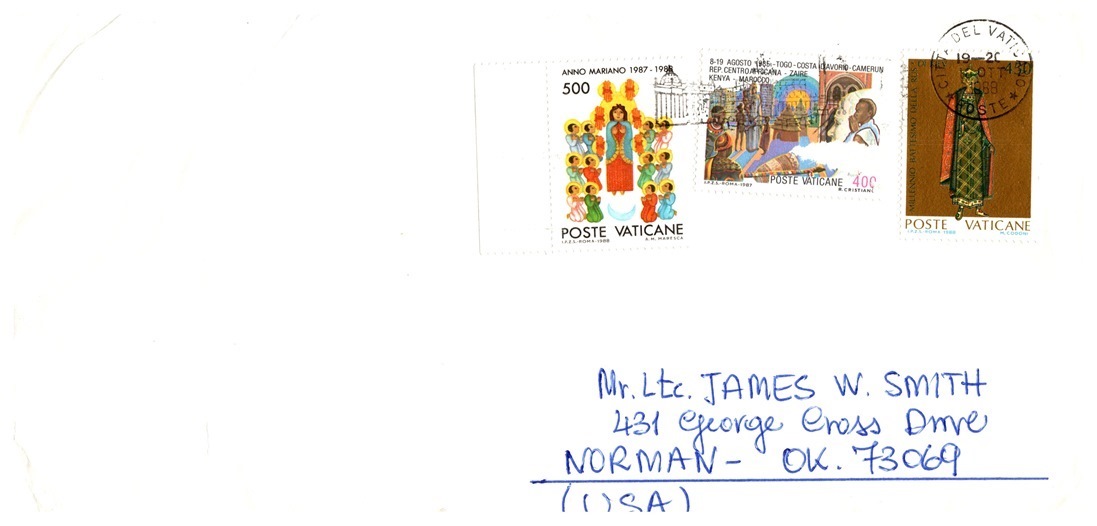 ANNO MARIANO 1987-1988
500
POSTE VATICANE
I.P.Z.S.-ROMA-1988 A.M. MARESCA
8-19 AGOSTO 1985-TOGO-COSTA D'AVORIO-CAMERUN
REP. CENTROAFRICANA - ZAIRE
KENYA - MAROCCO
POSTE VATICANE 400
I.P.Z.S.-ROMA-1987 R. CRISTIANI
CITTA DEL VATICANO
19-20
OTT
POSTE
MILLENNIO BATTESIMO DELLA
POSTE VATICANE
I.P.Z.S. ROMA 1988 M. CODONI
Mr. Ltc. JAMES W. SMITH
431 George Cross Drive
NORMAN - OK. 73069
(USA)